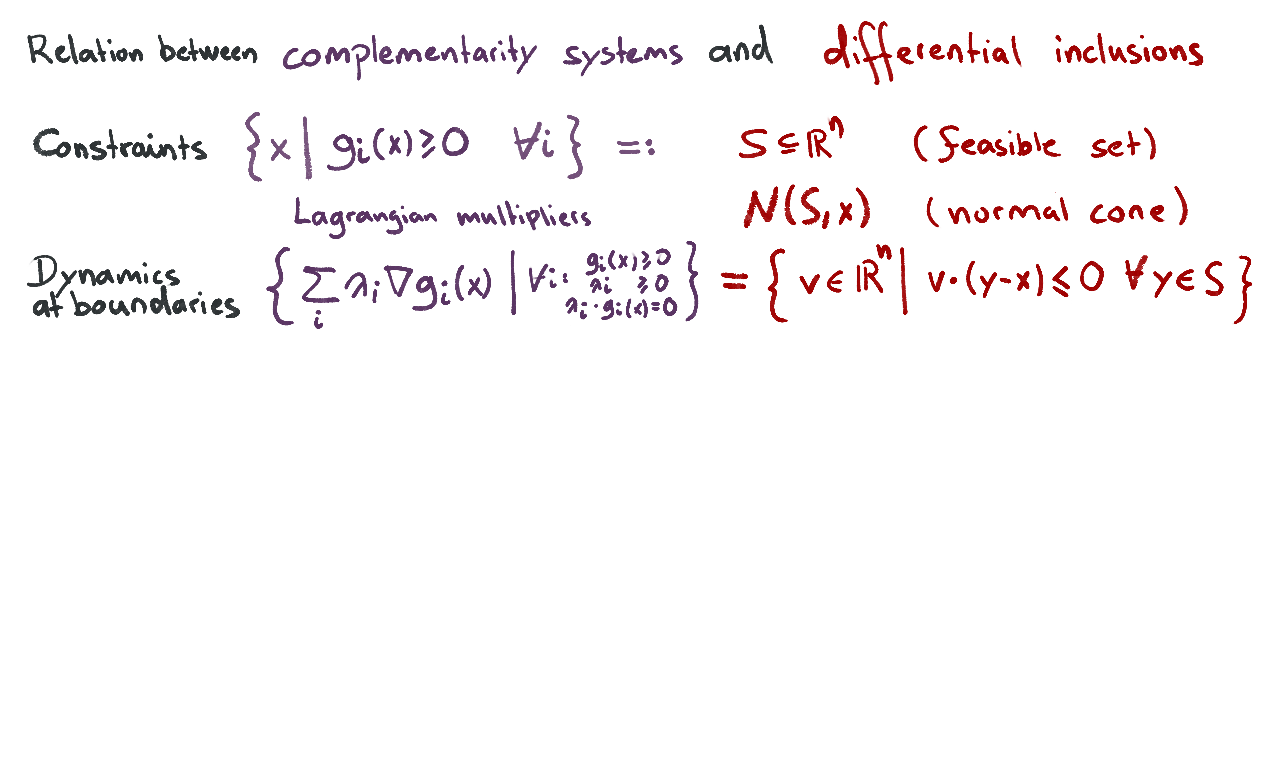 Relation between complementarity systems and differential inclusions
Constraints {x | gᵢ(x) ⩾ 0 ∀i} =: S ⊆ ℝⁿ (feasible set)
Lagrangian multipliers N(S, x) (normal cone)
Dynamics at boundaries { ∑ᵢ λᵢ ∇gᵢ(x) | ∀i: gᵢ(x) ⩾ 0 λᵢ ⩾ 0 λᵢ · gᵢ(x) = 0 } = { v ∈ ℝⁿ | v · (y-x) ⩽ 0 ∀ y ∈ S }